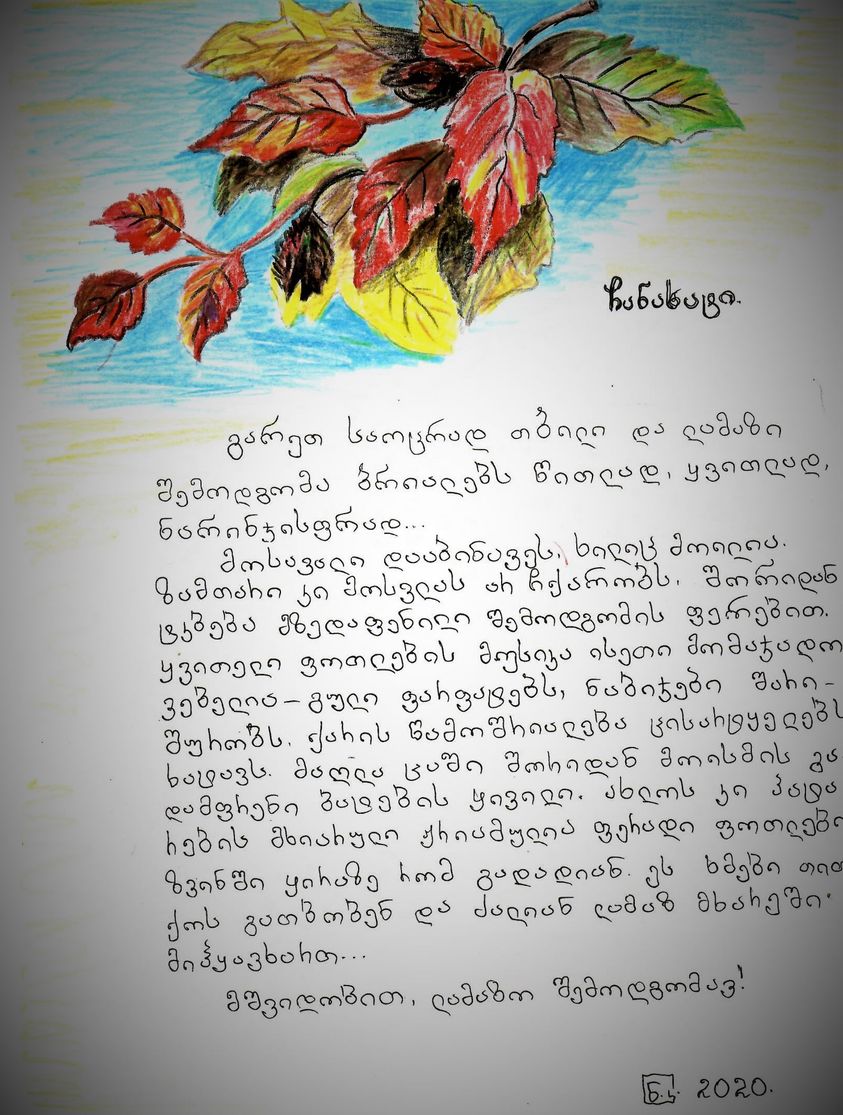 ჩანახატი.
გარეთ საოცრად თბილი და ლამაზი
შემოდგომა ბრიალებს წითლად, ყვითლად,
ნარინჯისფრად...
მოსავალი დააბინავეს, ხილიც მოილია.
ზამთარი კი მოსვლას არ ჩქარობს. შორიდან
ტკბება მზედაფენილი შემოდგომის ფერებით.
ყვითელი ფოთლების მუსიკა ისეთი მომაჯადო
ვებელია - გული ფარფატებს, ნაბიჯები შარი-
შურობს. ქარის წამოშრიალება ცისარტყელებს
ხატავს. მაღლა ცაში შორიდან მოისმის გა
დამფრენი ბატების ყივილი. ახლოს კი პატა
რების მხიარული ჟრიამულია ფერადი ფოთლები
ზვინში ყირაზე რომ გადადიან. ეს ხმები თით
ქოს გათბობენ და ძალიან ლამაზ მხარეში
მიჰყავხართ...
მშვიდობით, ლამაზო შემოდგომავ!
ნ.კ. 2020.